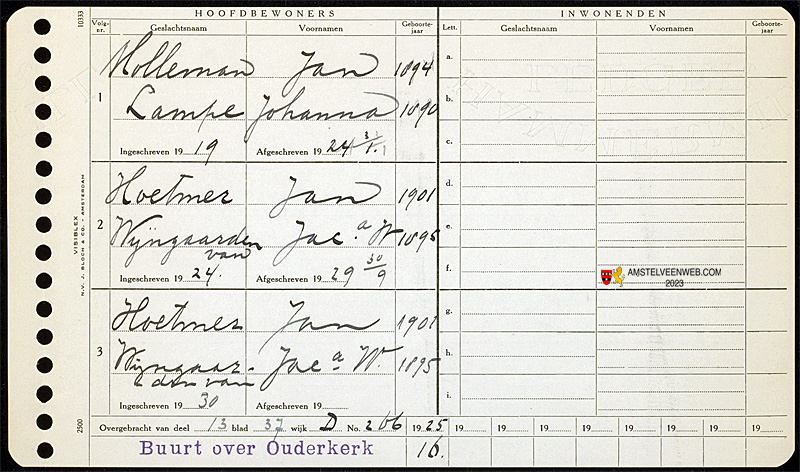 HOOFDBEWONERS INWONENDEN
Volg-nr. Geslachtsnaam Voornamen Geboorte-jaar Lett. Geslachtsnaam Voornamen Geboorte-jaar
10333
1
Molleman Jan 1894
Lampe Johanna 1890
Ingeschreven 19 19 Afgeschreven 19 24
2
Hoetmer Jan 1901
Wijngaarden Jac.a W 1895
van
Ingeschreven 19 24. Afgeschreven 19 29 30/9
3
Hoetmer Jan 1901
Wijngaar- Jac a W. 1895
den van
Ingeschreven 19 30 Afgeschreven 19
a.
b.
c.
d.
e.
f.
g.
h.
i.
AMSTELVEENWEB.COM
2023
VISIBLEX
N.V. J. BLOCH & CO. - AMSTERDAM
2500
Overgebracht van deel 13 blad 37 wijk D No. 266 19 25 19 19 19 19 19 19 19 19
Buurt over Ouderkerk 16.